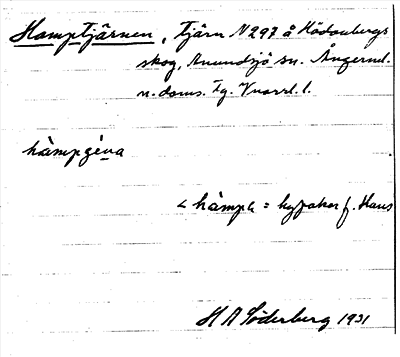 Hamptjärnen, Tjärn N 297 å Hädanbergs
skog, Anundsjö sn. Ångerml.
n. doms. Tg.
hàmpʒèna
< hàmpa = hypoker f. Hans
H A Söderberg 1931